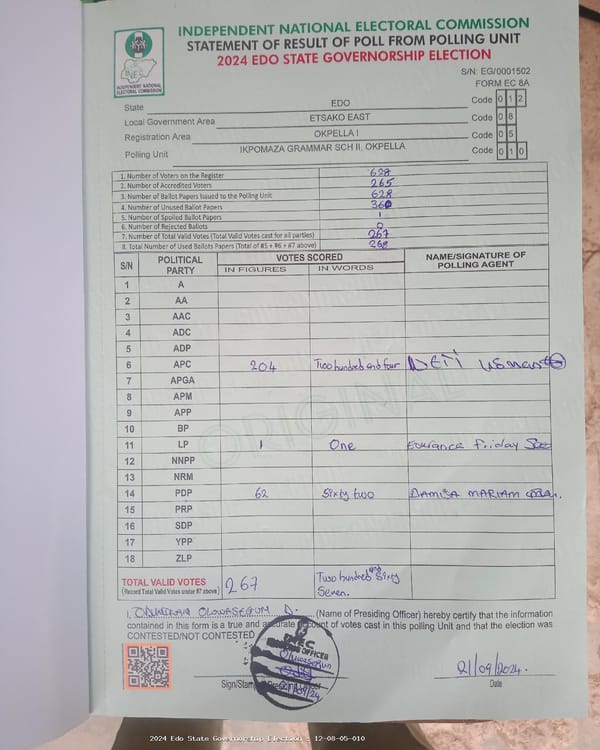 INDEPENDENT NATIONAL ELECTORAL COMMISSION
STATEMENT OF RESULT OF POLL FROM POLLING UNIT
2024 EDO STATE GOVERNORSHIP ELECTION
INEC
INDEPENDENT NATIONAL
ELECTORAL COMMISSION
S/N: EG/0001502
FORM EC 8A
State EDO Code 0 1 2
Local Government Area ETSAKO EAST Code 0 8
Registration Area OKPELLA I Code 0 5
Polling Unit IKPOMAZA GRAMMAR SCH II, OKPELLA Code 0 1 0
1. Number of Voters on the Register 628
2. Number of Accredited Voters 265
3. Number of Ballot Papers Issued to the Polling Unit 628
4. Number of Unused Ballot Papers 360
5. Number of Spoiled Ballot Papers 1
6. Number of Rejected Ballots 0
7. Number of Total Valid Votes (Total Valid Votes cast for all parties) 267
8. Total Number of Used Ballots Papers (Total of #5 + #6 + #7 above) 268
S/N POLITICAL PARTY VOTES SCORED NAME/SIGNATURE OF POLLING AGENT
IN FIGURES IN WORDS
1 A
2 AA
3 AAC
4 ADC
5 ADP
6 APC 204 Two hundred and four
7 APGA
8 APM
9 APP
10 BP
11 LP 1 One Friday
12 NNPP
13 NRM
14 PDP 62 Sixty two DAMISA MARIAM
15 PRP
16 SDP
17 YPP
18 ZLP
ORIGINAL
TOTAL VALID VOTES 267 Two hundred and Sixty Seven.
(Record Total Valid Votes under #7 above)
I, D. (Name of Presiding Officer) hereby certify that the information
contained in this form is a true and accurate account of votes cast in this polling Unit and that the election was
CONTESTED/NOT CONTESTED
INEC
OFFICER
Oluwasegun
21/09/24
Sign/Stamp
21/09/2024.
Date
2024 Edo State Governorship Election - 12-08-05-010